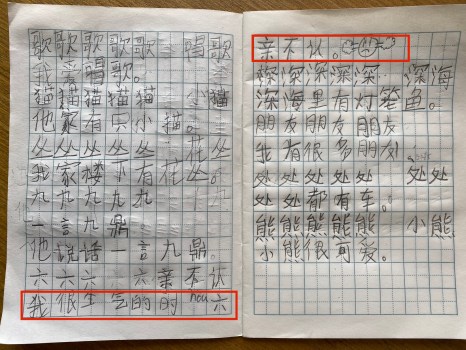 歌歌歌歌歌 唱歌
我爱唱歌。
猫猫猫猫猫 小猫
他家有只小猫。
丛丛丛丛丛 花丛
我家楼下有花丛。
九九九九九
一言九鼎
他说话一言九鼎。
六六六 六亲不认
我很生气的的hou六
亲不认。
深深深深深 深海
深海里有灯笼鱼。
朋友朋友 朋友
我有很多朋友!
处处处处处 处处
处处都有车。
熊熊熊熊熊 小熊
小熊很可爱。